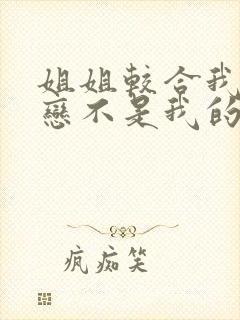 姐姐較合我
戀不是我的
疯痴笑